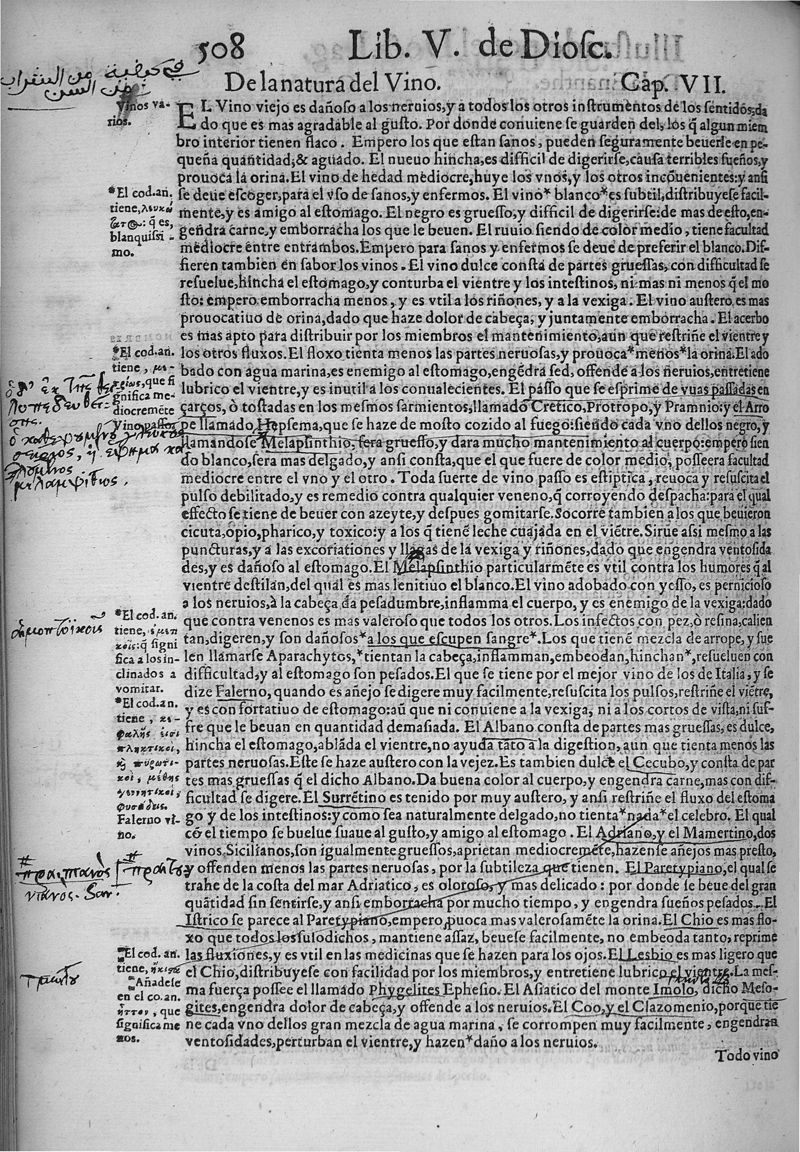 508 Lib. V. de Diosc.
De la natura del Vino. Cap. VII.
EL Vino viejo es dañoso a los neruios, y a todos los otros instrumentos de los sentidos, da
do que es mas agradable al gusto. Por donde conuiene se guarden del, los q̃ algun miem
bro interior tienen flaco. Empero los que estan sanos, pueden seguramente beuerle en pe
queña quantidad, & aguado. El nueuo hincha, es difficil de digerirse, causa terribles sueños, y
prouoca la orina. El vino de hedad mediocre, huye los vnos, y los otros incõuenientes: y ansi
se deue escoger, para el vso de sanos, y enfermos. El vino* blanco* es subtil, distribuyese facil-
mente, y es amigo al estomago. El negro es gruesso, y difficil de digerirse: de mas de esto, en-
gendra carne, y emborracha los que le beuen. El ruuio siendo de color medio, tiene facultad
mediocre entre entrambos. Empero para sanos y enfermos se deue de preferir el blanco. Dif-
fieren tambien en sabor los vinos. El vino dulce consta de partes gruessas, con difficultad se
resuelue, hincha el estomago, y conturba el vientre y los intestinos, ni mas ni menos q̃ el mo
sto: empero emborracha menos, y es vtil a los riñones, y a la vexiga. El vino austero es mas
prouocatiuo de orina, dado que haze dolor de cabeça, y juntamente emborracha. El acerbo
es mas apto para distribuir por los miembros el mantenimiento, aun que restriñe el vientre y
los otros fluxos. El floxo tienta menos las partes neruosas, y prouoca* menos* la orina. El ado
bado con agua marina, es enemigo al estomago, engẽdra sed, offende a los neruios, entretiene
lubrico el vientre, y es inutil a los conualecientes. El passo que se esprime de vuas passadas en
çarços, ò tostadas en los mesmos sarmientos, llamado Cretico, Protropo, y Pramnio: y el Arro
pe llamado Hepsema, que se haze de mosto cozido al fuego: siendo cada vno dellos negro, y
llamandose Melapsinthio, sera gruesso, y dara mucho mantenimiento al cuerpo: empero sien
do blanco, sera mas delgado, y ansi consta, que el que fuere de color medio, posseera facultad
mediocre entre el vno y el otro. Toda suerte de vino passo es estiptica, reuoca y resuscita el
pulso debilitado, y es remedio contra qualquier veneno, q̃ corroyendo despacha: para el qual
effecto se tiene de beuer con azeyte, y despues gomitarse. Socorre tambien a los que beuieron
cicuta, opio, pharico, y toxico: y a los q̃ tienẽ leche cuajada en el viẽtre. Sirue assi mesmo a las
puncturas, y a las excoriationes y llagas de la vexiga y riñones, dado que engendra ventosida
des, y es dañoso al estomago. El Melapsinthio particularmẽte es vtil contra los humores q̃ al
vientre destilan, del qual es mas lenitiuo el blanco. El vino adobado con yesso, es pernicioso
a los neruios, à la cabeça da pesadumbre, inflamma el cuerpo, y es enemigo de la vexiga: dado
que contra venenos es mas valeroso que todos los otros. Los infectos con pez, ò resina, calien
tan, digeren, y son dañosos* a los que escupen sangre*. Los que tienẽ mezcla de arrope, y sue
len llamarse Aparachytos,* tientan la cabeça, inflamman, embeodan, hinchan*, resueluen con
difficultad, y al estomago son pesados. El que se tiene por el mejor vino de los de Italia, y se
dize Falerno, quando es añejo se digere muy facilmente, resuscita los pulsos, restriñe el viẽtre,
y es confortatiuo de estomago: aũ que ni conuiene a la vexiga, ni a los cortos de vista, ni suf-
fre que le beuan en quantidad demasiada. El Albano consta de partes mas gruessas, es dulce,
hincha el estomago, ablãda el vientre, no ayuda tãto a la digestion, aun que tienta menos las
partes neruosas. Este se haze austero con la vejez. Es tambien dulce el Cecubo, y consta de par
tes mas gruessas q̃ el dicho Albano. Da buena color al cuerpo, y engendra carne, mas con dif-
ficultad se digere. El Surrẽtino es tenido por muy austero, y ansi restriñe el fluxo del estoma
go y de los intestinos: y como sea naturalmente delgado, no tienta* nada* el celebro. El qual
cõ el tiempo se buelue suaue al gusto, y amigo al estomago. El Adriano, y el Mamertino, dos
vinos Sicilianos, son igualmente gruessos, aprietan mediocremẽte, hazense añejos mas presto,
y offenden menos las partes neruosas, por la subtileza que tienen. El Paretypiano, el qual se
trahe de la costa del mar Adriatico, es oloroso, y mas delicado: por donde se beue del gran
quãtidad sin sentirse, y ansi emborracha por mucho tiempo, y engendra sueños pesados. El
Istrico se parece al Paretypiano, empero, puoca mas valerosamẽte la orina. El Chio es mas flo-
xo que todos los sulodichos, mantiene assaz, beuese facilmente, no embeoda tanto, reprime
las fluxiones, y es vtil en las medicinas que se hazen para los ojos. El Lesbio es mas ligero que
el Chio, distribuyese con facilidad por los miembros, y entretiene lubrico el vientre. La mes-
ma fuerça possee el llamado Phygelites Ephesio. El Asiatico del monte Imolo, dicho Meso-
gites, engendra dolor de cabeça, y offende a los neruios. El Coo, y el Clazomenio, porque tie
ne cada vno dellos gran mezcla de agua marina, se corrompen muy facilmente, engendran
ventosidades, perturban el vientre, y hazen* daño a los neruios.
Todo vino
Vinos va-
rios.
*El cod. an.
tiene,
q̃ es,
blanquissi-
mo.
*El cod. an.
tiene,
que si
gnifica me-
diocremẽte
y vino passo.
*El cod. an.
tiene,
q̃ signi
fica a los in-
clinados a
vomitar.
*El cod. an.
tiene,
Falerno vi-
no.
*El cod. an.
tiene,
*Añadese
en el co. an.
ἧττον, que
significa me
nos.